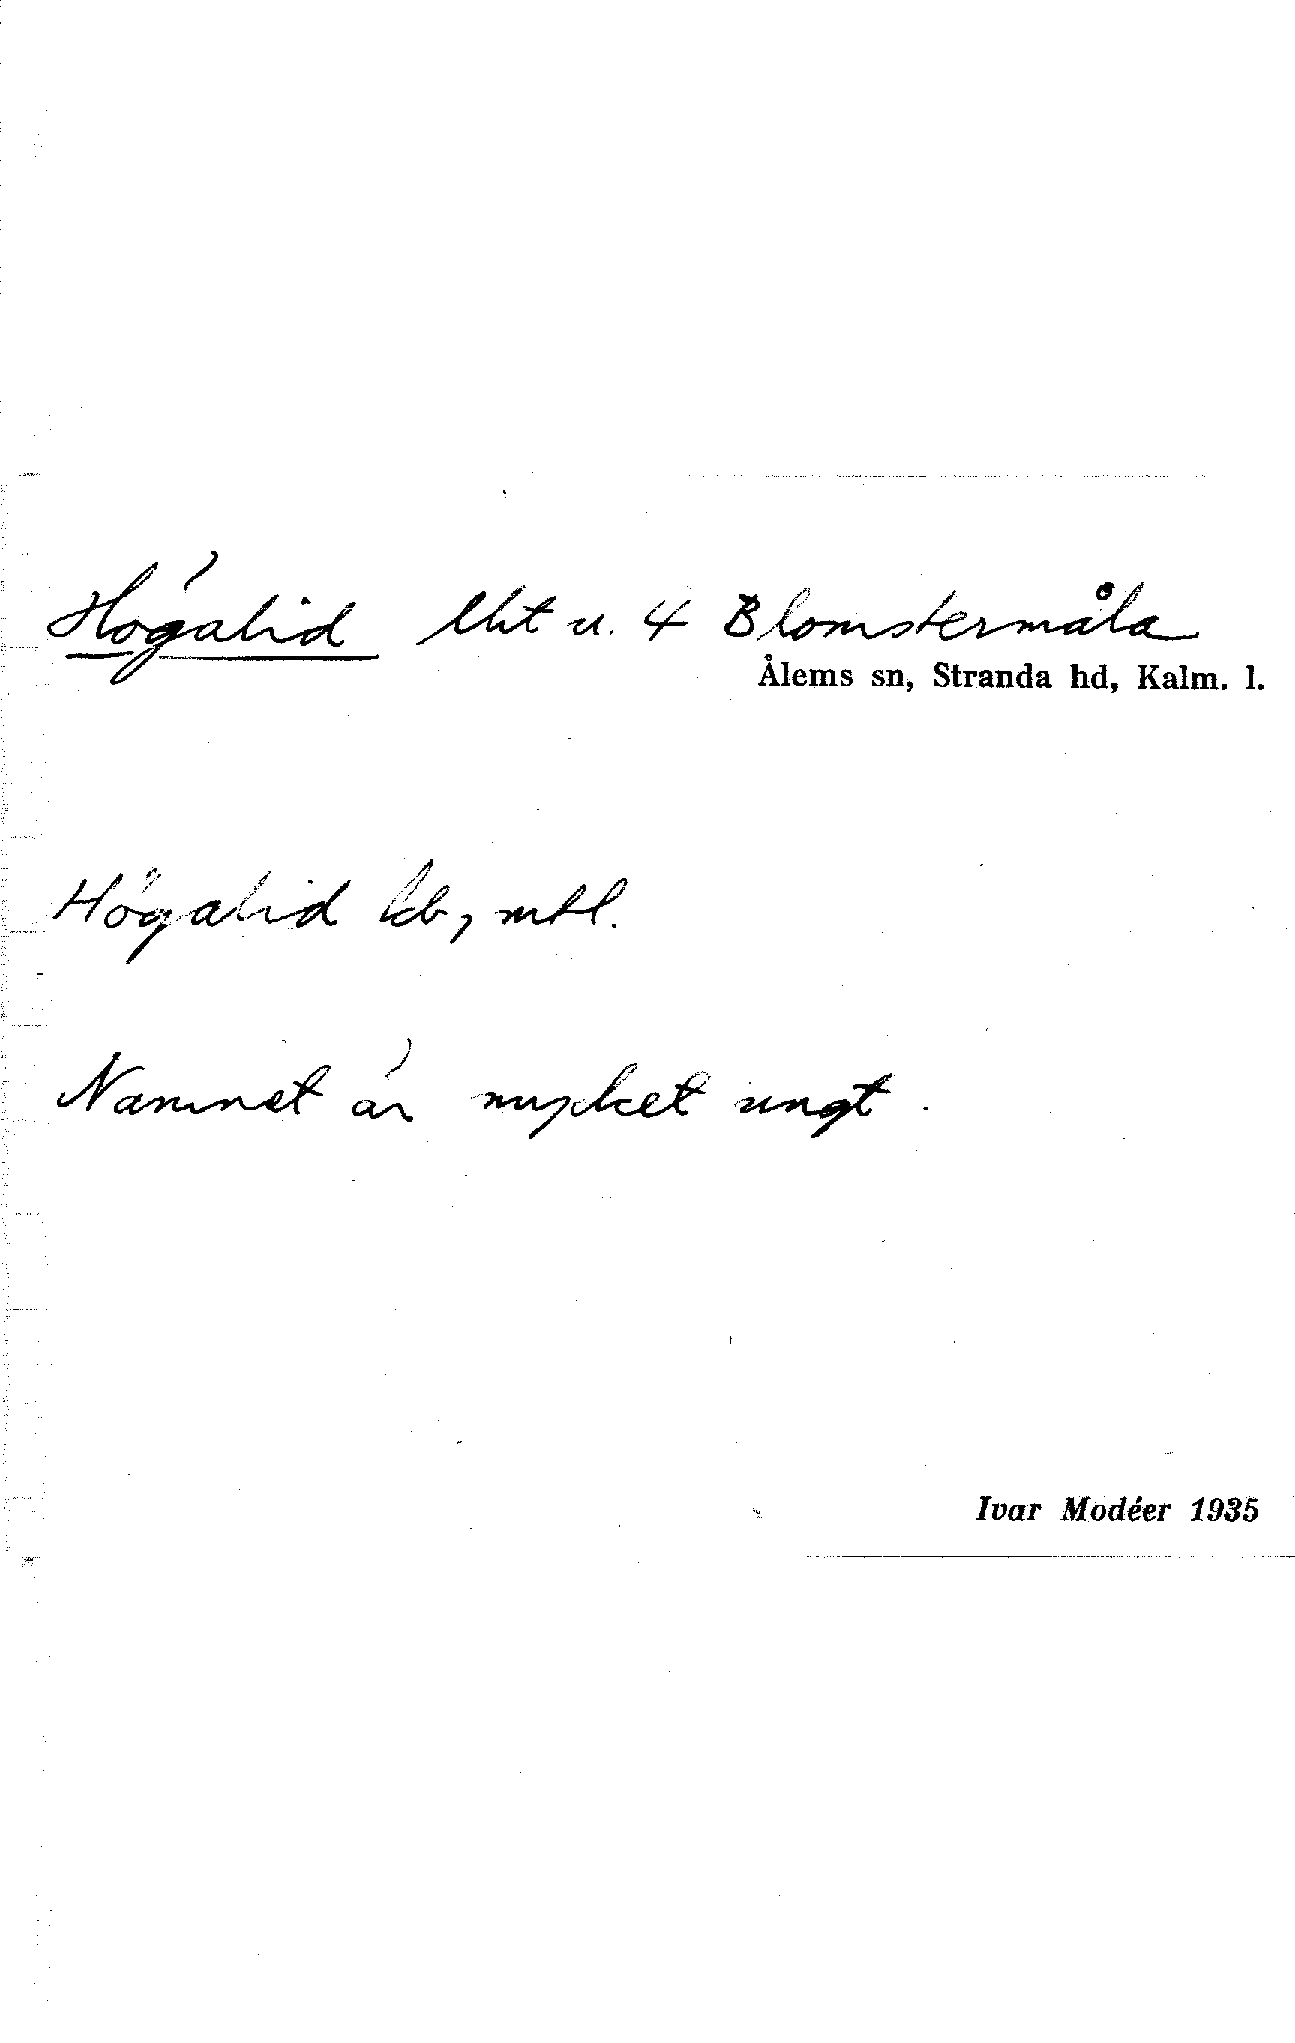 Högalid lht u. 4 Blomstermåla
Ålems sn, Stranda hd, Kalm. l.
Högalid kb, mtl.
Namnet är mycket ungt.
Ivar Modéer 1935